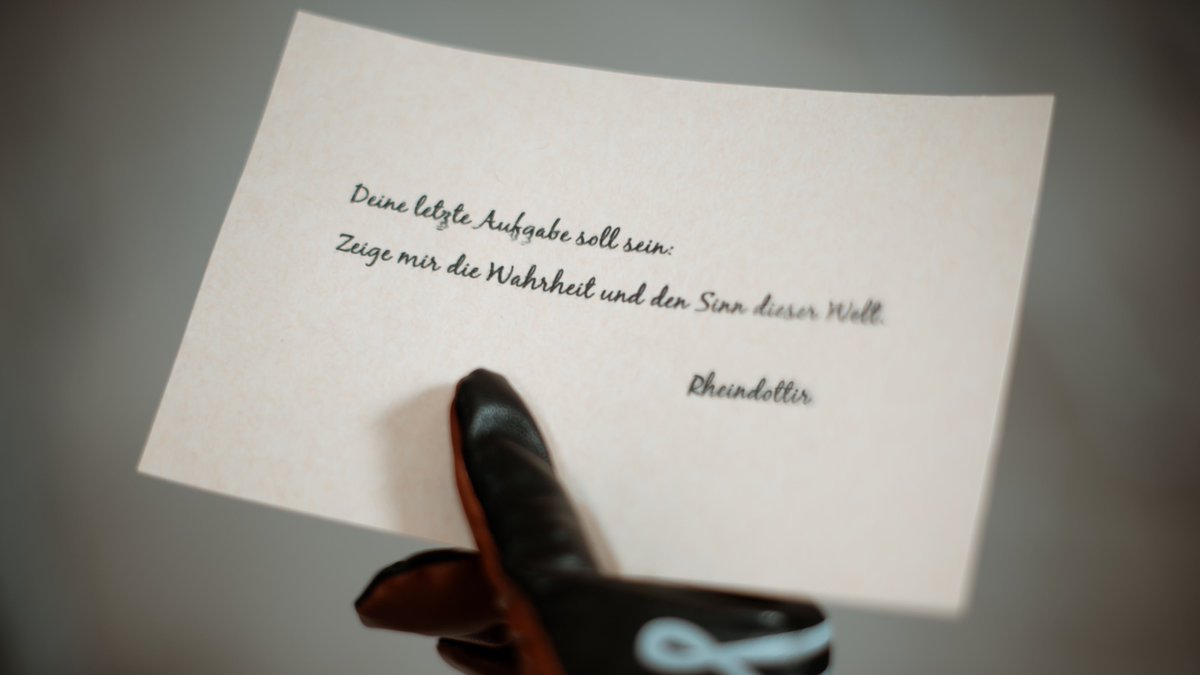 Deine letzte Aufgabe soll sein:
Zeige mir die Wahrheit und den Sinn dieser Welt.
Rheindottir